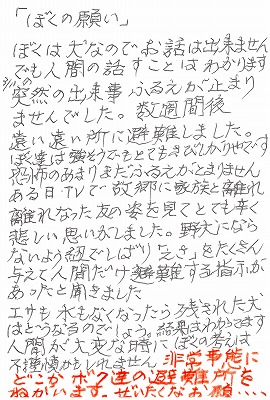 「ぼくの願い」
ぼくは犬なのでお話は出来ません
でも人間の話すことはわかります
3/11の
突然の出来事 ふるえが止まり
ませんでした。数週間後
遠い遠い所に避難しました。
ぼく達は強そうでもとてもきびしかりやです
恐怖のあまりまだふるえがとまりません
ある日TVで故郷に家族と離れ
離れなった友の姿を見てとても辛く
悲しい思いがしました。野犬になら
ないよう紐でしばり「えさ」をたくさん
与えて人間だけ避難する指示が
あったと聞きました
エサも水もなくなったら残された犬
はどうなるのでしょう。結果はわかってます
人間が大変な時にぼくの考えは
不謹慎かもしれません 非常事態に
どこかボク達の避難所を
ねがいます。ぜいたくなお願・・・・